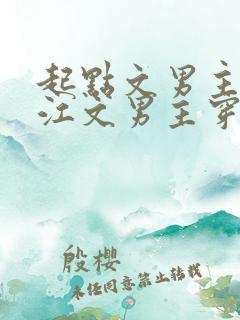 起點文男主
江文男主穿
殷櫻
未任同意禁止转载